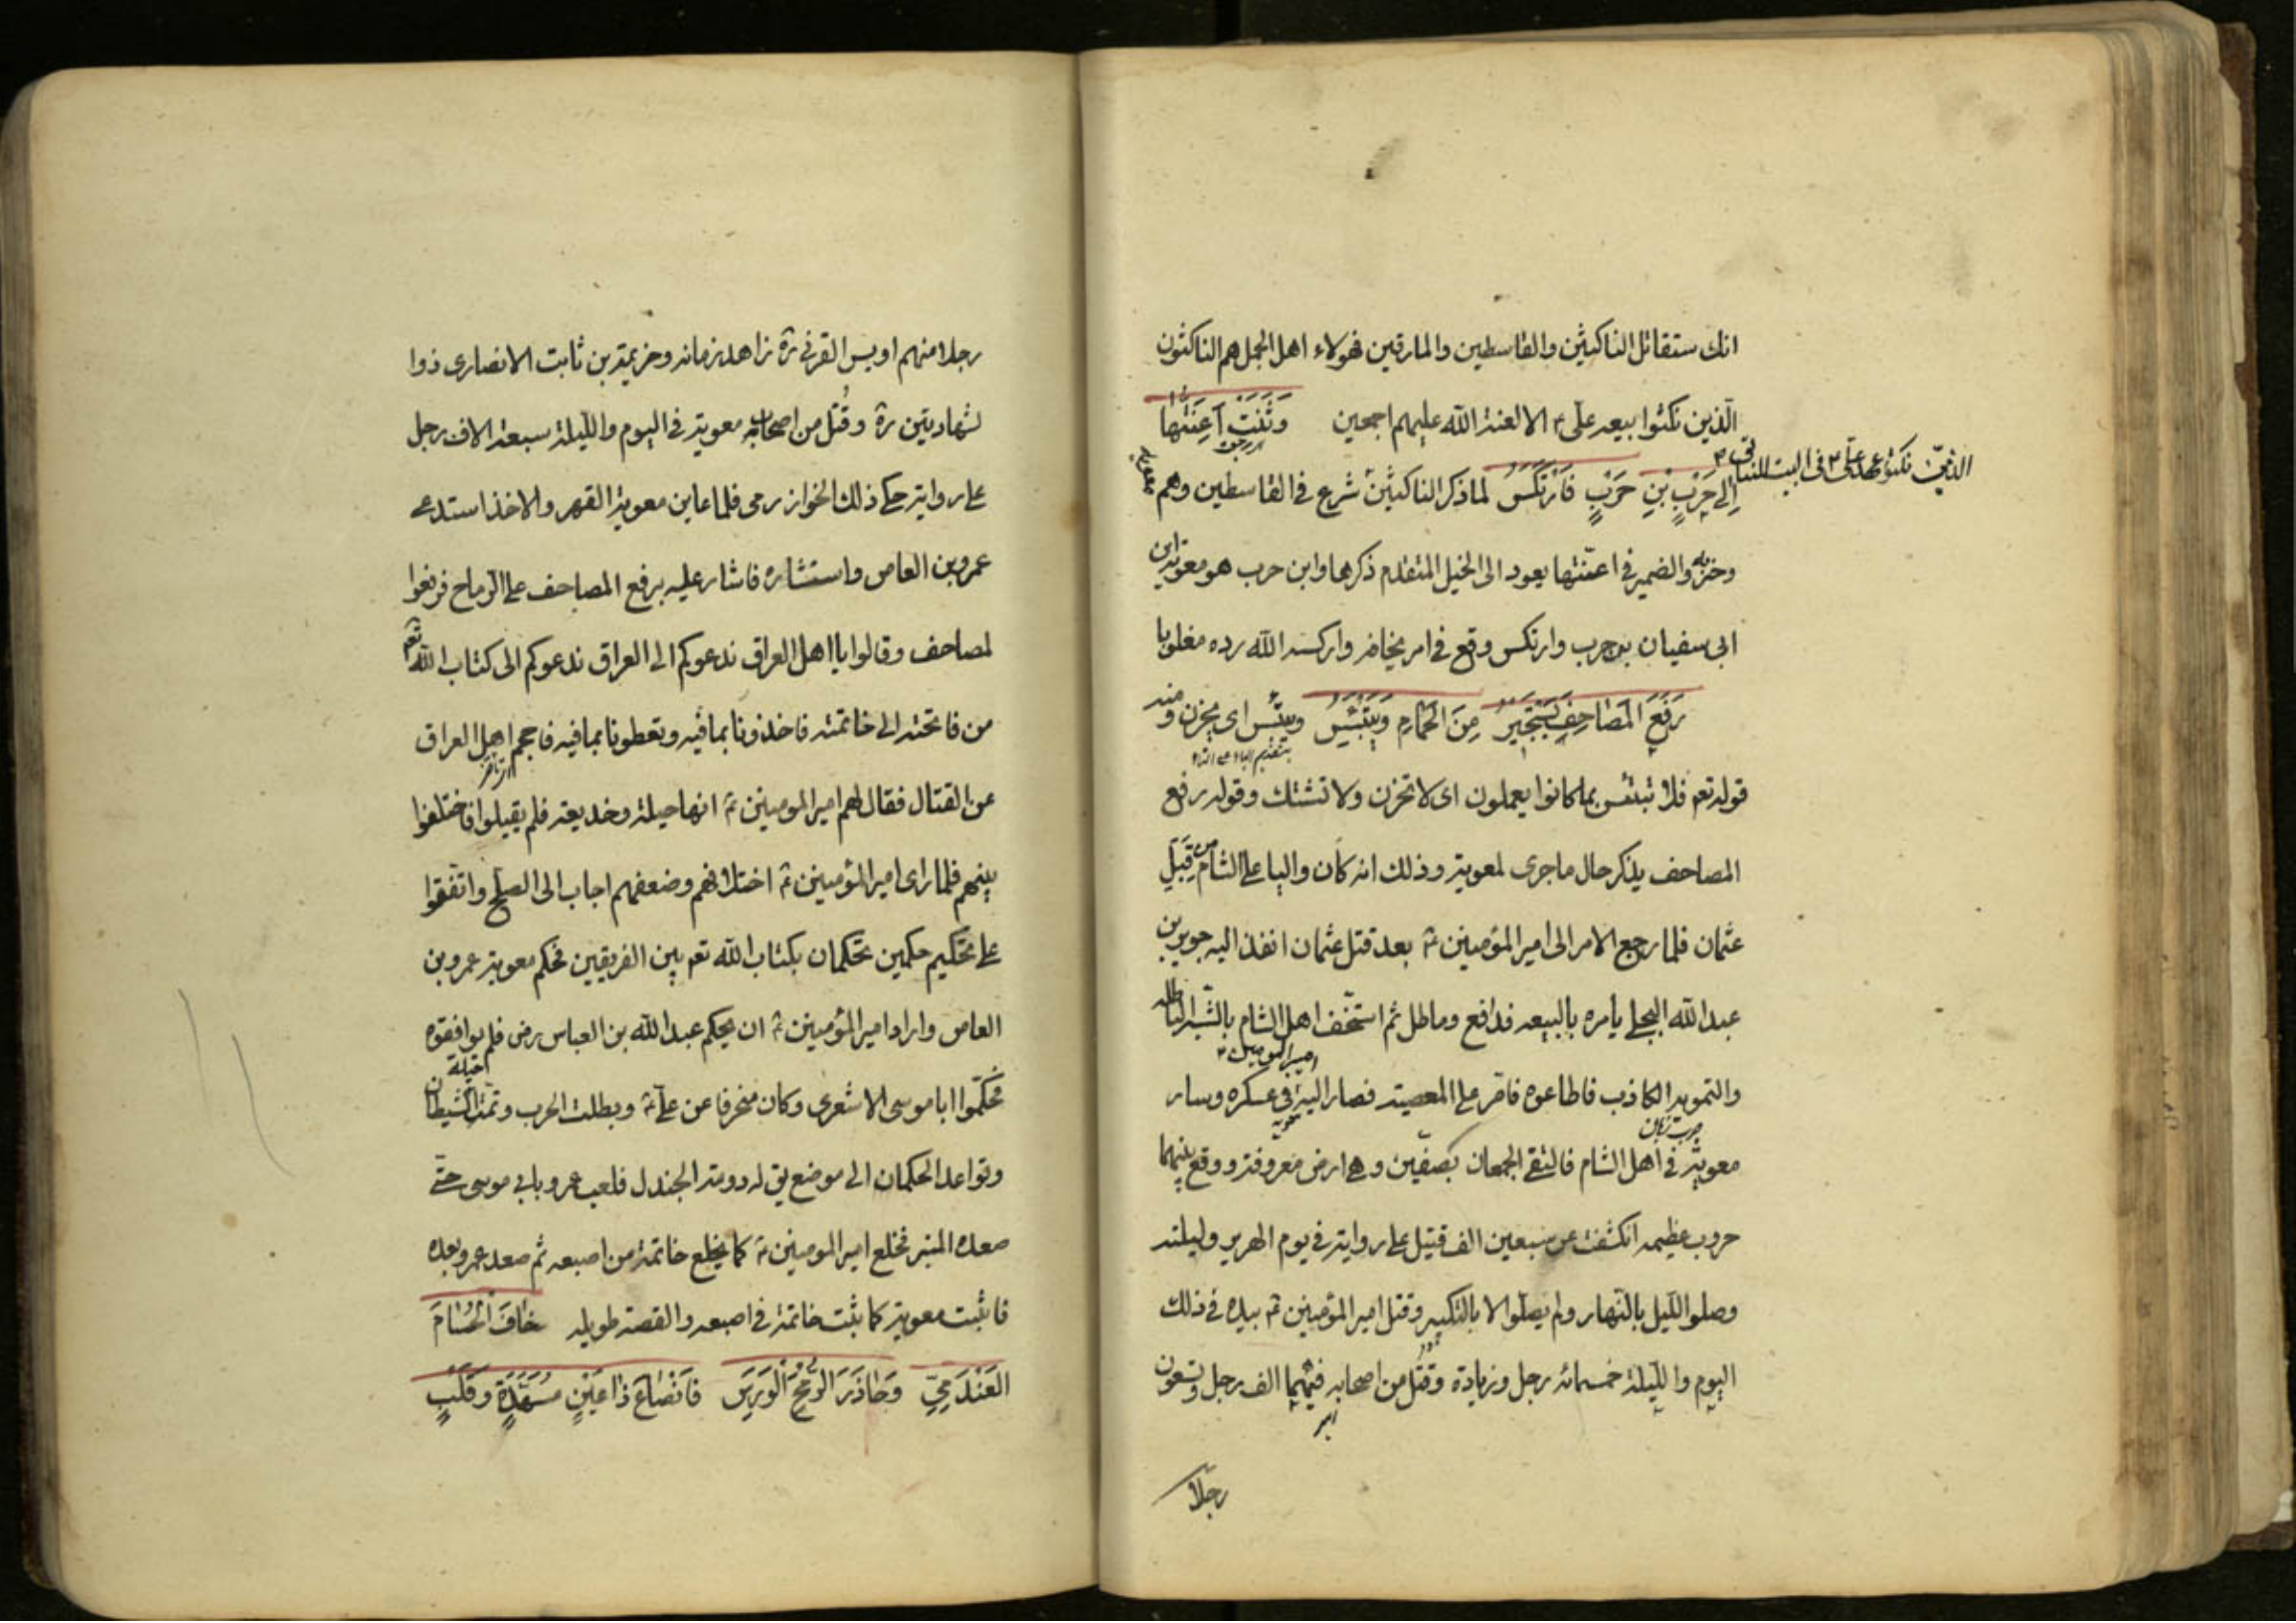 انك ستقاتل الناكثين والقاسطين والمارقين فهولاء اهل الجمل هم الناكثون
الذين نكثوا بيعه على ع الا لعنة الله عليهم اجمعين وَثَنَتْ اَعِنَّتَها
اِلى حَرْبِ بْنِ حَرْبٍ فَارْتَكَسَ لما ذكر الناكثين شرع في القاسطين وهم
وحزبه والضمير في اعنتها يعود الى الخيل المتقدم ذكرها وابن حرب هو معوية ابن
ابى سفيان بن حرب وارتكس وقع في امر يخافه واركسه الله رده مغلوبا
رَفَعَ المَصَاحِفَ يَسْتَجيرُ مِنَ الحِمَامِ وَيَبْتَئِسُ ويبتئس اى يحزن ومنه
بتقديم الباء على التاء
قوله تعم فلا تبتئس بما كانوا يعملون اى لا تحزن ولا تشتك وقوله رفع
المصاحف يذكر حال ما جرى لمعوية وذلك انه كان واليا على الشام من قِبَلِ
عثمان فلما رجع الامر الى امير المؤمنين ع بعد قتل عثمان انفذ اليه جرير بن
عبد الله البجلى يأمره بالبيعه فدافع وماطل ثم استخف اهل الشام بالشبه الباطله
والتمويه الكاذب فاطاعوه فاقر على المعصية فصار اليه في عسكره وسار
امير المومنين ع
معوية في اهل الشام فالتقى الجمعان بصفين وهى ارض معروفة ووقع بينهما
حروب عظيمه انكشفت عن سبعين الف قتيل على رواية في يوم الهرير وليلته
وصلوا الليل بالنهار ولم يصلوا الا بالتكبير وقتل امير المؤمنين ع بيده في ذلك
اليوم والليلة خمسمائه رجل وزيادة وقُتل من اصحابه فيهما الف رجل وسبعون
رجلا
الذين نكثوا عهد على ع في البيت الثانى
رجلا منهم اويس القرنى ره زاهد زمانه وخزيمة بن ثابت الانصارى ذوا
لشهادتين ره وقُتل من اصحاب معوية في اليوم والليلة سبعة الاف رجل
على رواية حكى ذلك الخوارزمى فلما عاين معوية القهر والاخذ استدعى
عمرو بن العاص واستشاره فاشار عليه برفع المصاحف على الرماح فرفعوا
لمصاحف وقالوا يا اهل العراق ندعوكم الى العراق ندعوكم الى كتاب الله تعم
من فاتحته الى خاتمته فاخذونا بما فيه وتعطونا بما فيه فاحجم اهل العراق
عن القتال فقال لهم امير المومنين ع انها حيلة وخديعة فلم يقبلوا فاختلفوا
بينهم فلما راى امير المؤمنين ع اختلافهم وضعفهم اجاب الى الصلح واتفقوا
على تحكيم حكمين تحكمان بكتاب الله تعم بين الفريقين فحكم معوية عمرو بن
العاص واراد امير المؤمنين ع ان يحكم عبد الله بن العباس رض فلم يوافقوه
فحكموا ابا موسى الاشعرى وكان منحرفا عن على ع وبطلت الحرب وتمت حيلة الشيطان
وتواعد الحكمان الى موضع يق له دومة الجندل فلعب عمرو بابى موسى حتى
صعده المنبر فخلع امير المومنين ع كما يخلع خاتمة من اصبعه ثم صعد عمرو بعده
فاثبت معوية كما يثبت خاتمة في اصبعه والقصة طويله خافَ الحُسَامَ
العَنْدَمِيّ وَحَاذَرَ الرُمْحَ الوَرِسَ فَانْصَاعَ ذا عَيْنٍ مُسَهَّدَةٍ وقَلْبٍ